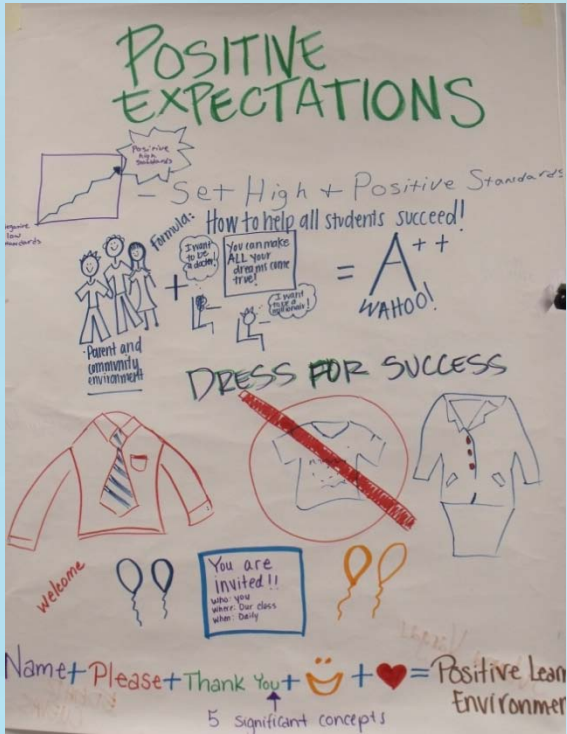 POSITIVE
EXPECTATIONS
Positive
high
standards
- Set High + Positive Standards
low
standards
Formula: How to help all students succeed!
I want
to be
a doctor!
You can make
ALL your
dreams come
true!
+
= A++
WAHOO!
I want
to be a
millionair!
Parent and
community
environment
DRESS FOR SUCCESS
welcome
You are
invited!!
who: you
where: Our class
when: Daily
Name + Please + Thank You + + = Positive Lear
Environmen
5 significant concepts